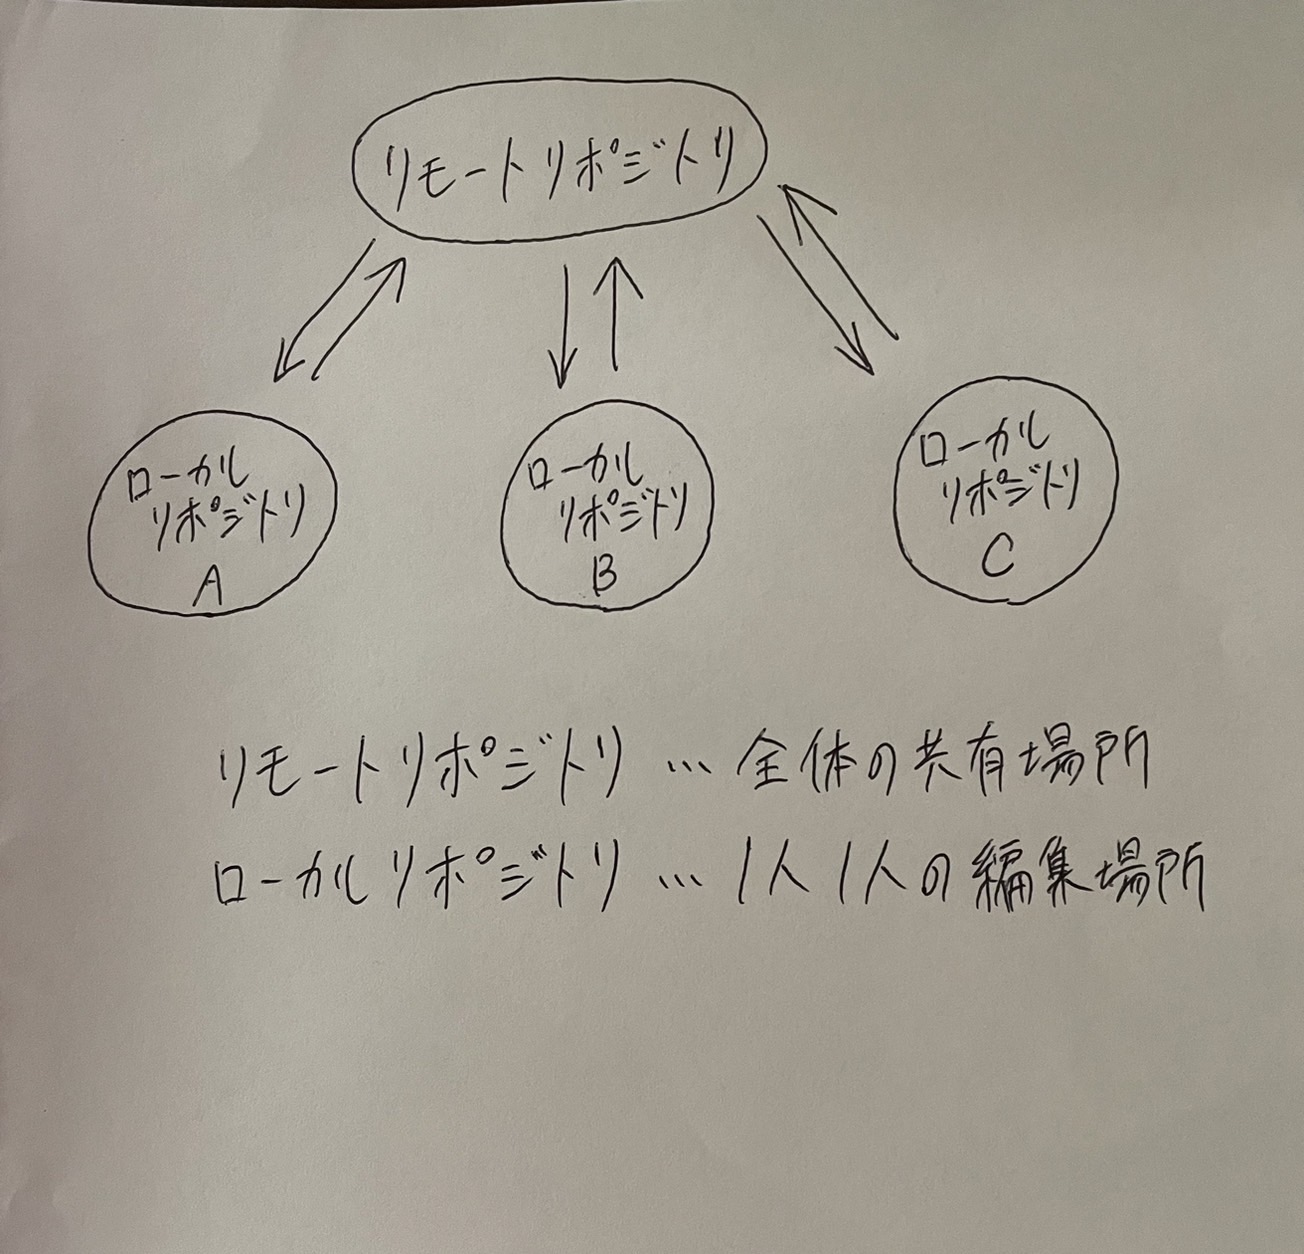 リモートリポジトリ
ローカル
リポジトリ
A
ローカル
リポジトリ
B
ローカル
リポジトリ
C
リモートリポジトリ … 全体の共有場所
ローカルリポジトリ … 1人1人の編集場所